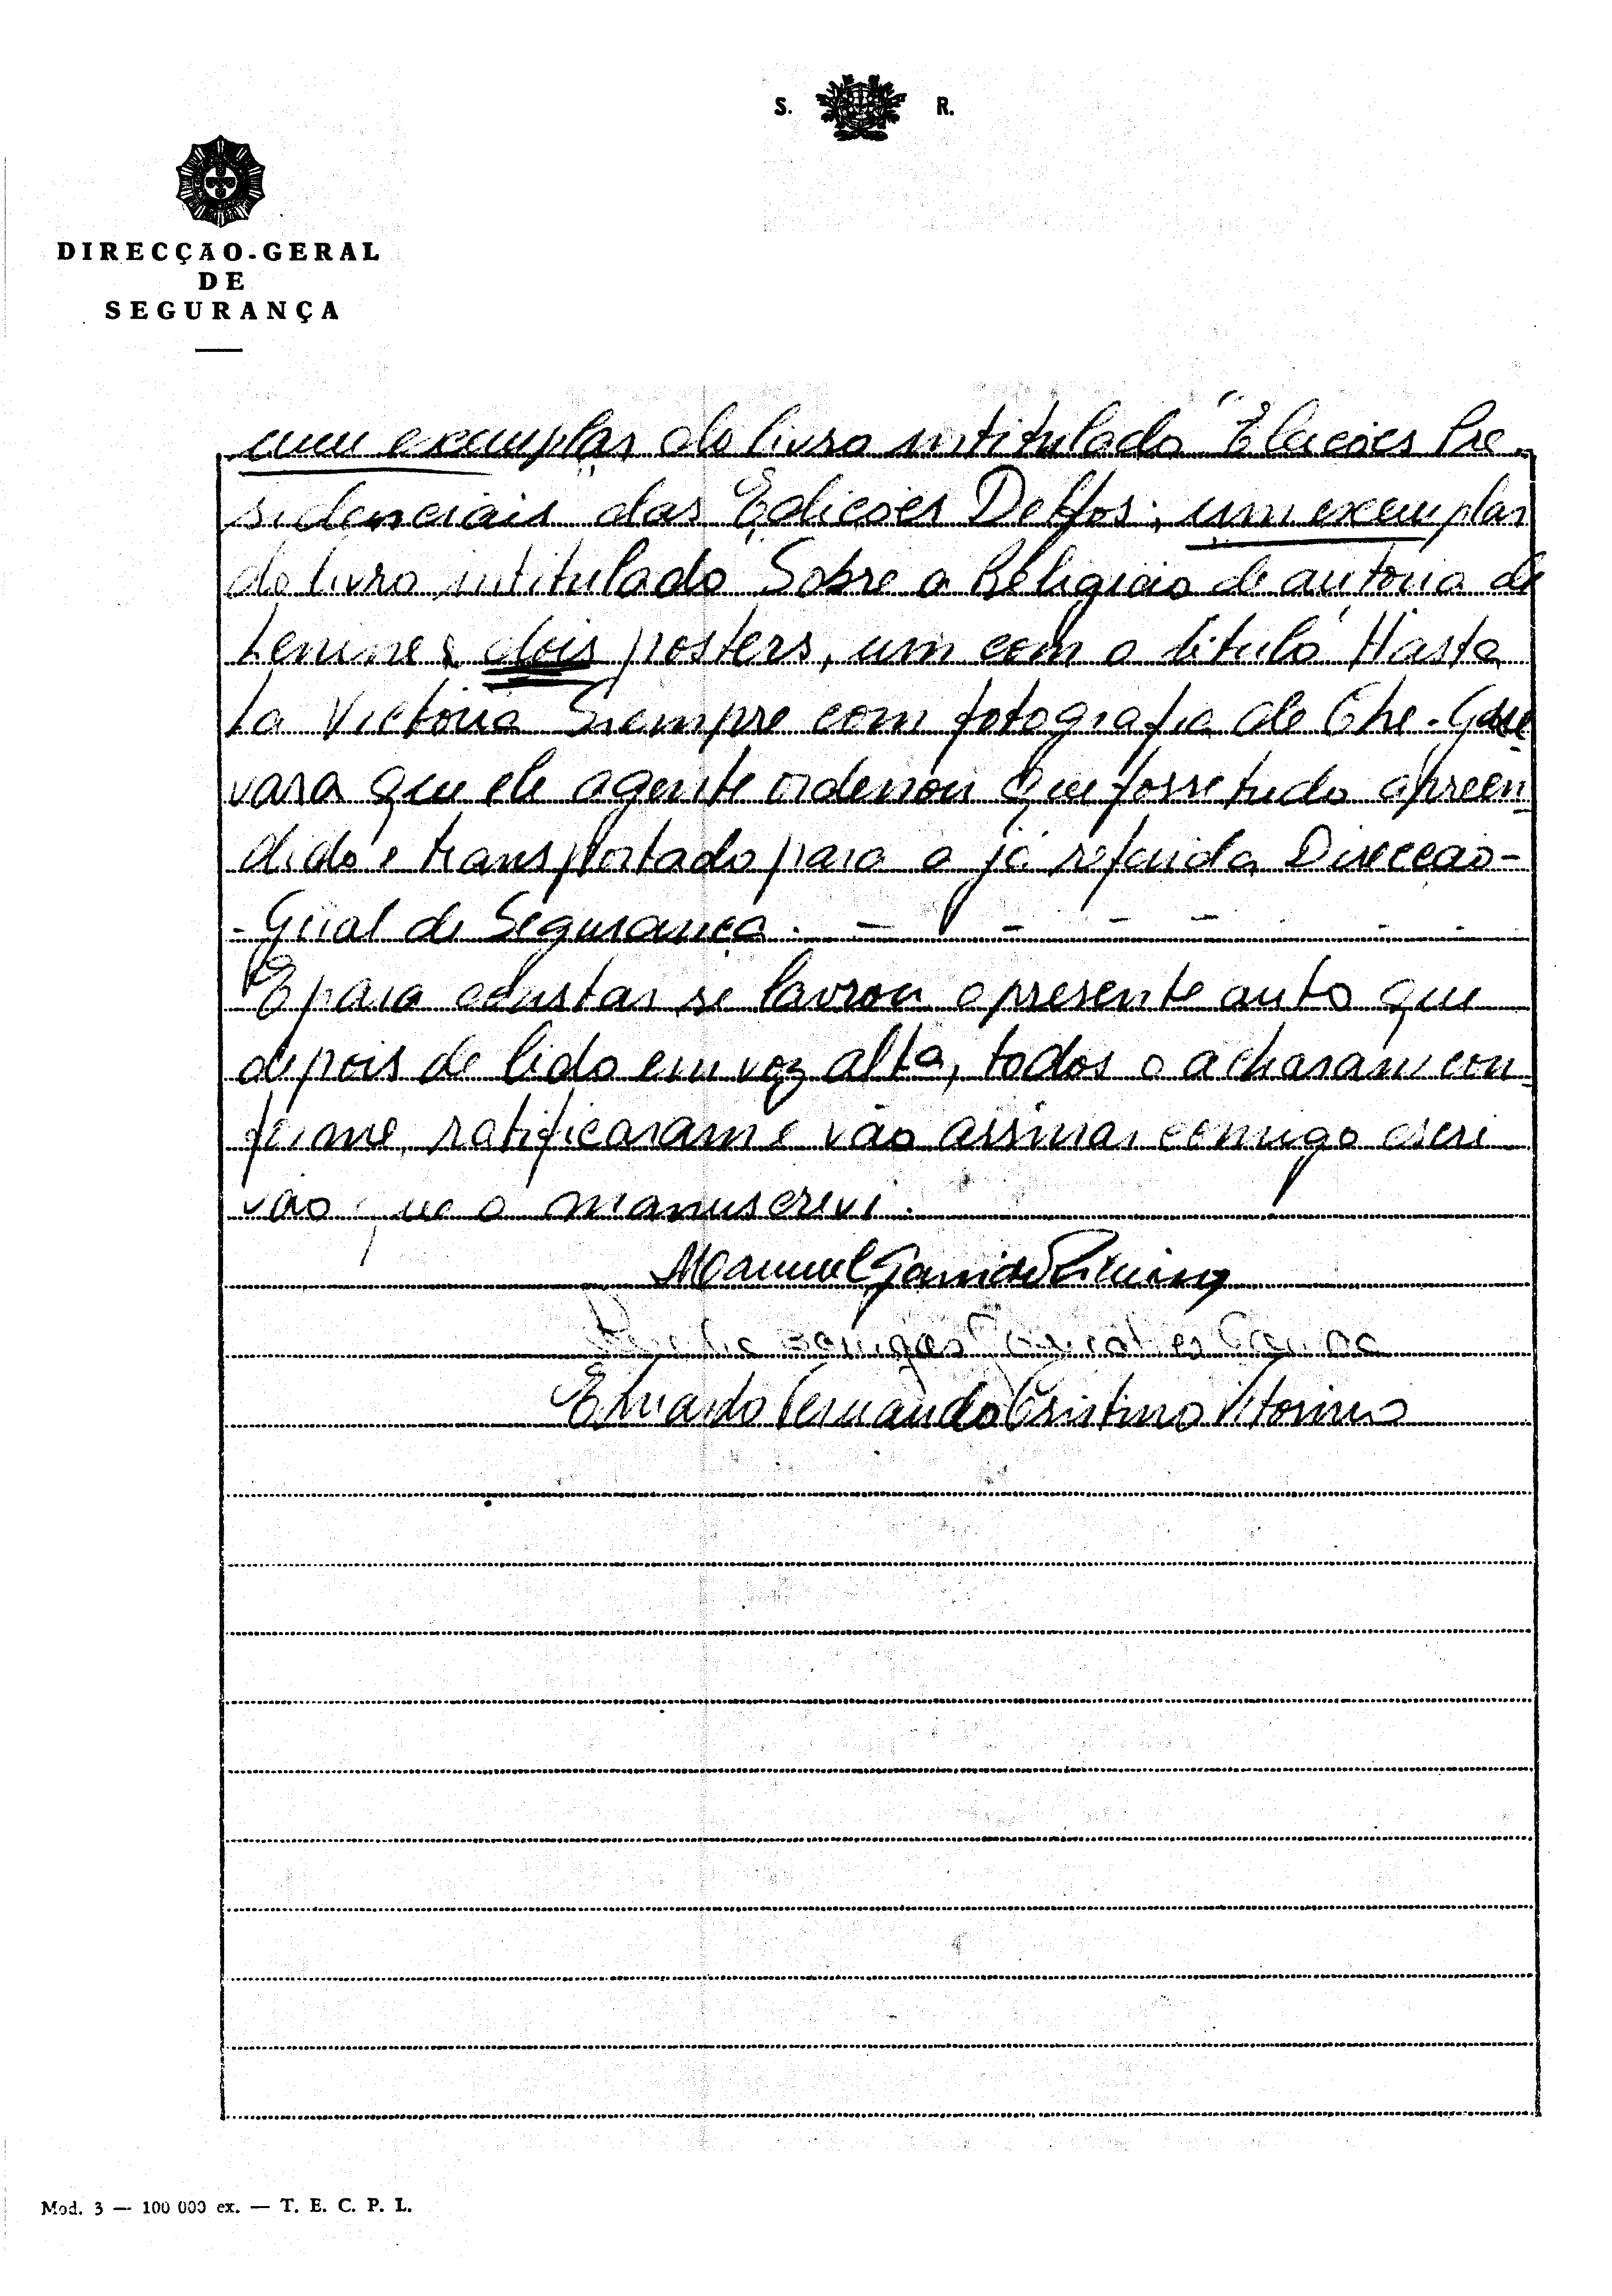 S. R.
DIRECÇÃO-GERAL
DE
SEGURANÇA
um exemplar do livro intitulado "Eleições Pre-
sidenciais das Edições Delfos; um exemplar
do livro intitulado Sobre a Religião de autoria de
Lenine e dois posters, um com o titulo Hasta
la Victoria Siempre com fotografia de Che-Gue
vara que ele agente ordenou que fosse tudo apreen
dido e transportado para a já referida Direcção-
-Geral de Segurança. - - - - - -
E para constar se lavrou o presente auto que
depois de lido em voz alta, todos o acharam con
forme, ratificaram e vão assinar comigo escri
vão que o manuscrevi.
Manuel
Eduardo Fernando Cristino Vitorino
Mod. 3 — 100 000 ex. — T. E. C. P. L.